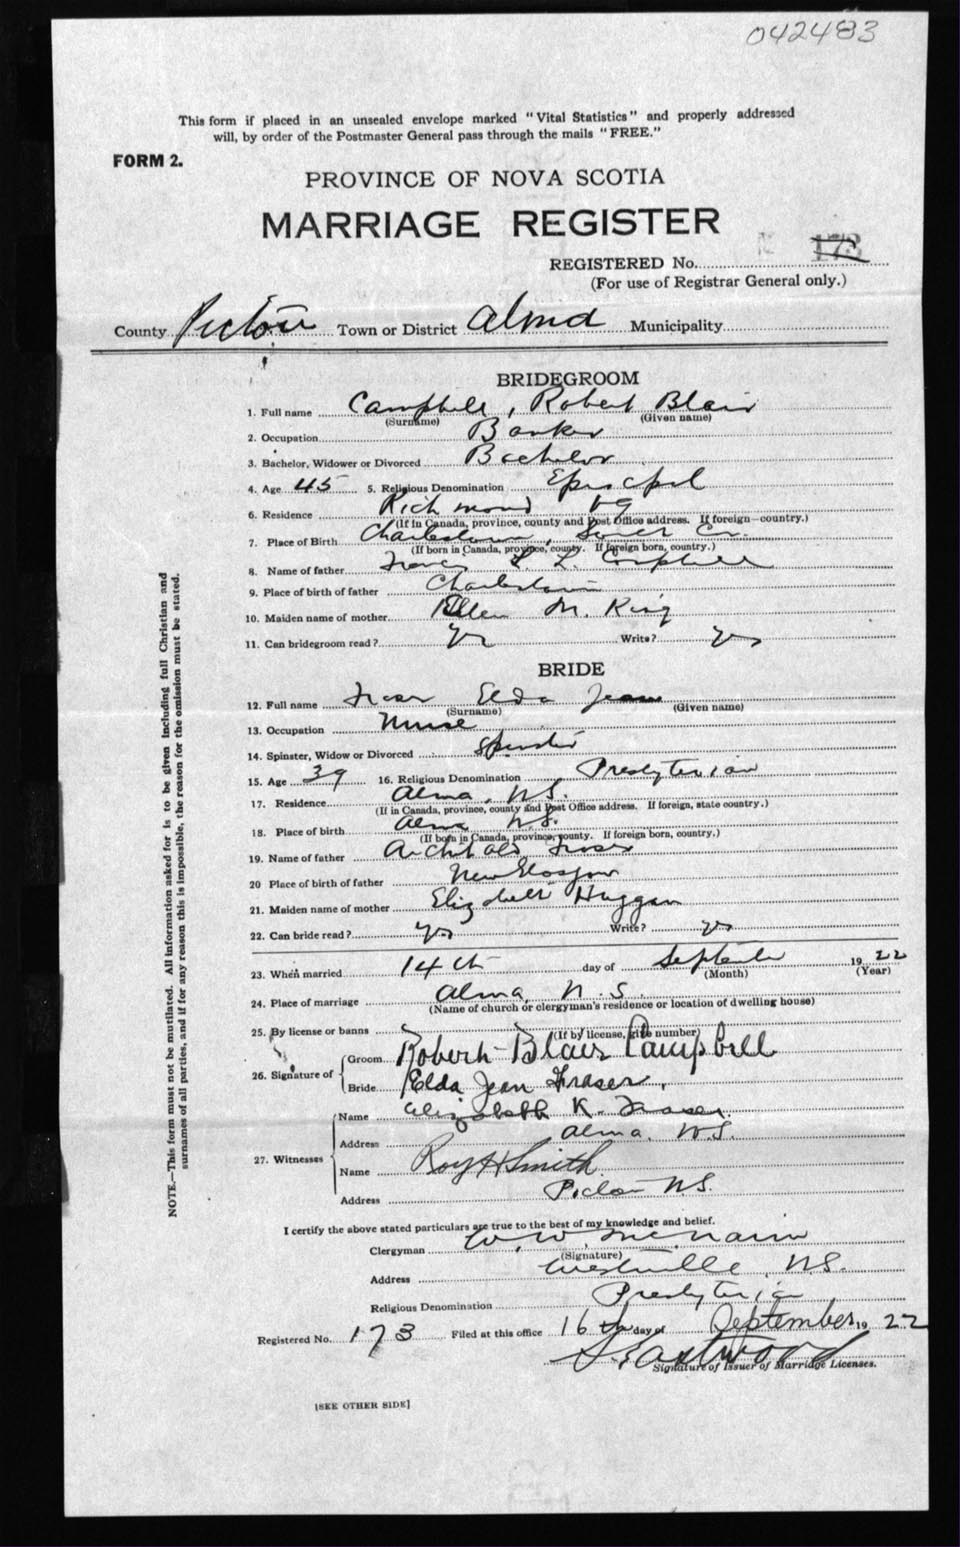 042483
This form if placed in an unsealed envelope marked "Vital Statistics" and properly addressed
will, by order of the Postmaster General pass through the mails "FREE."
FORM 2.
PROVINCE OF NOVA SCOTIA
MARRIAGE REGISTER
173
REGISTERED No.
(For use of Registrar General only.)
County Pictou Town or District Alma Municipality
BRIDEGROOM
1. Full name Campbell, Robert Blair
(Surname) (Given name)
2. Occupation Banker
3. Bachelor, Widower or Divorced Bachelor
4. Age 45 5. Religious Denomination Episcpal
6. Residence Richmond
(If in Canada, province, county and Post Office address. If foreign—country.)
7. Place of Birth Charlestown,
(If born in Canada, province, county. If foreign born, country.)
8. Name of father L. Campbell
9. Place of birth of father Charlestown
10. Maiden name of mother Ellen M. King
11. Can bridegroom read? Yes Write? Yes
BRIDE
12. Full name Fraser Elda Jean
(Surname) (Given name)
13. Occupation Nurse
14. Spinster, Widow or Divorced Spinster
15. Age 39 16. Religious Denomination Presbyterian
17. Residence Alma, N.S.
(If in Canada, province, county and Post Office address. If foreign, state country.)
18. Place of birth Alma N.S.
(If born in Canada, province, county. If foreign born, country.)
19. Name of father Archibald Fraser
20 Place of birth of father New Glasgow
21. Maiden name of mother Elizabeth Huggan
22. Can bride read? yes Write? yes
23. When married 14th day of September 1922
(Month) (Year)
24. Place of marriage Alma, N.S.
(Name of church or clergyman's residence or location of dwelling house)
25. By license or banns
(If by license, give number)
26. Signature of Groom Robert Blair Campbell
Bride Elda Jean Fraser,
27. Witnesses Name Elizabeth K. Fraser.
Address Alma. N.S.
Name Roy H Smith
Address Pictou N.S.
I certify the above stated particulars are true to the best of my knowledge and belief.
Clergyman W. W. McNairn
(Signature)
Address Westville, N.S.
Religious Denomination Presbyterian
Registered No. 173 Filed at this office 16th day of September 1922
Eastwood
Signature of Issuer of Marriage Licenses.
[SEE OTHER SIDE]
NOTE.—This form must not be mutilated. All information asked for is to be given including full Christian and
surnames of all parties, and if for any reason this is impossible, the reason for the omission must be stated.